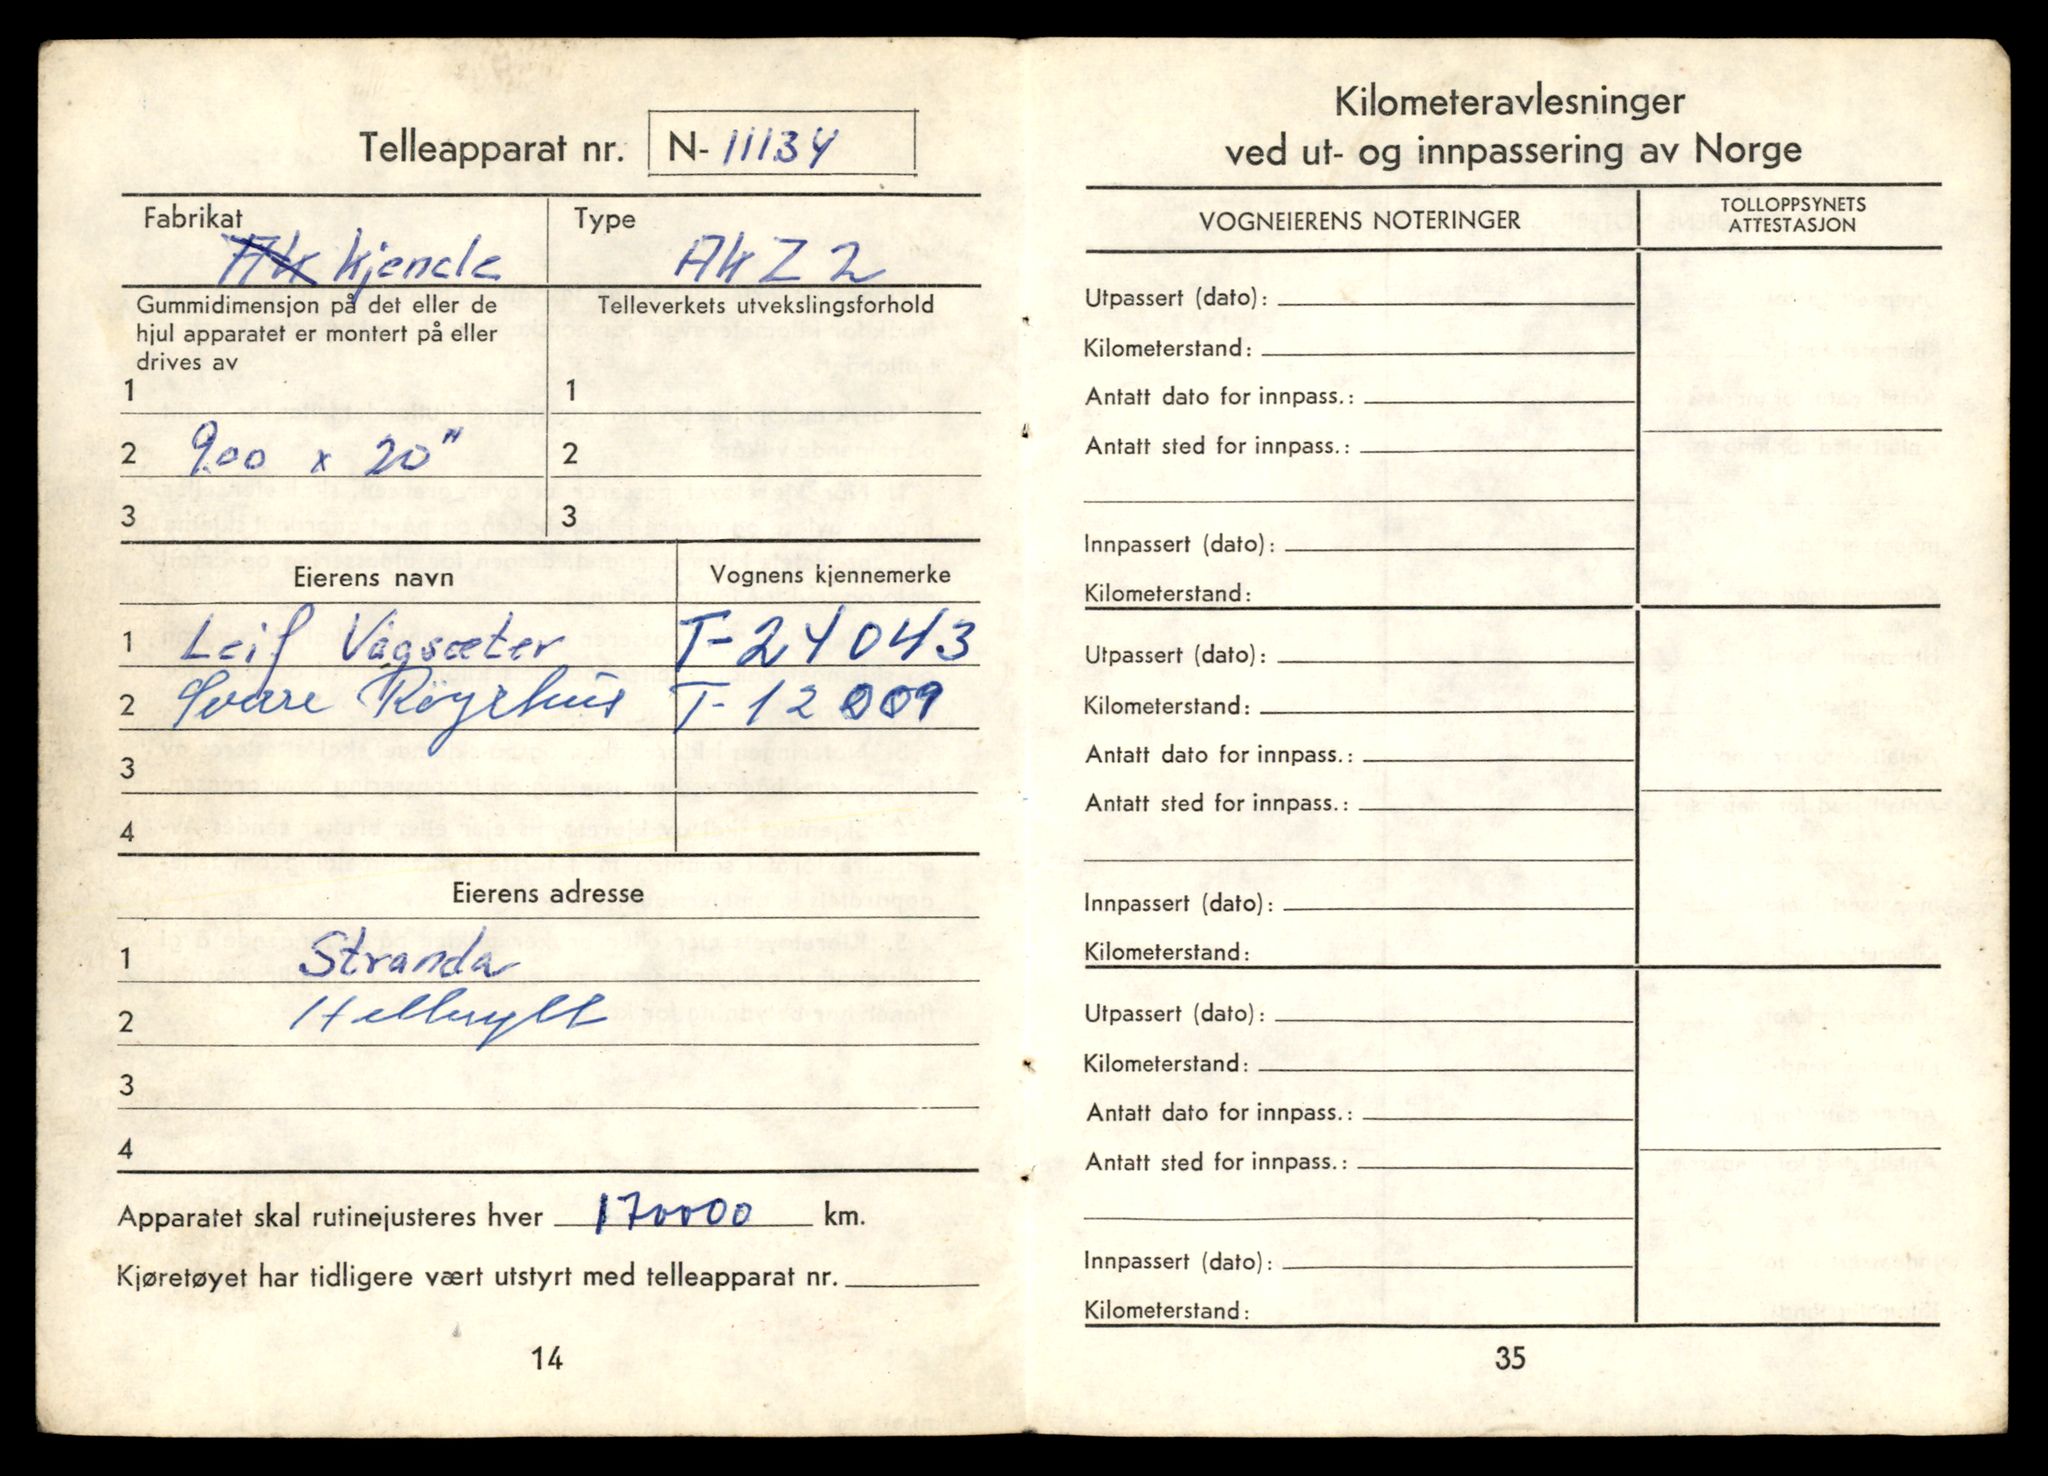 Telleapparat nr. N- 11134
Fabrikat
Type
Kjende
AK Z 2
Gummidimensjon på det eller de
hjul apparatet er montert på eller
drives av
Telleverkets utvekslingsforhold
1
1
2 9.00 x 20"
2
3
3
Eierens navn
Vognens kjennemerke
1 Leif Vagsæter T-24043
2 Sverre Röyrhus T-12009
3
4
Eierens adresse
1 Stranda
2 Hellesylt
3
4
Apparatet skal rutinejusteres hver 170000 km.
Kjøretøyet har tidligere vært utstyrt med telleapparat nr.
14
Kilometeravlesninger
ved ut- og innpassering av Norge
VOGNEIERENS NOTERINGER
TOLLOPPSYNETS
ATTESTASJON
Utpassert (dato):
Kilometerstand:
Antatt dato for innpass.:
Antatt sted for innpass.:
Innpassert (dato):
Kilometerstand:
Utpassert (dato):
Kilometerstand:
Antatt dato for innpass.:
Antatt sted for innpass.:
Innpassert (dato):
Kilometerstand:
Utpassert (dato):
Kilometerstand:
Antatt dato for innpass.:
Antatt sted for innpass.:
Innpassert (dato):
Kilometerstand:
35